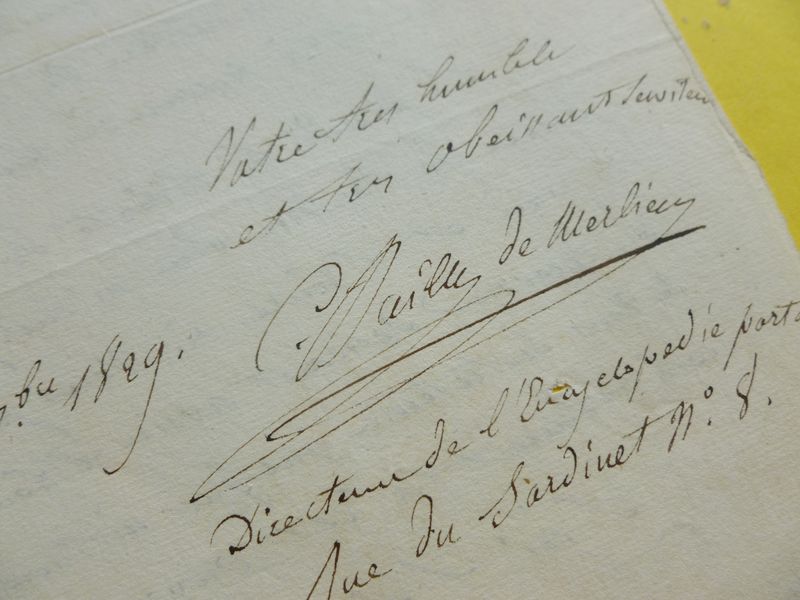 Votre très humble
et très obéissant serviteu
bre 1829. C. Bailly de Merlieux
Directeur de l'Encyclopédie porta
Rue du Jardinet N°. 8.